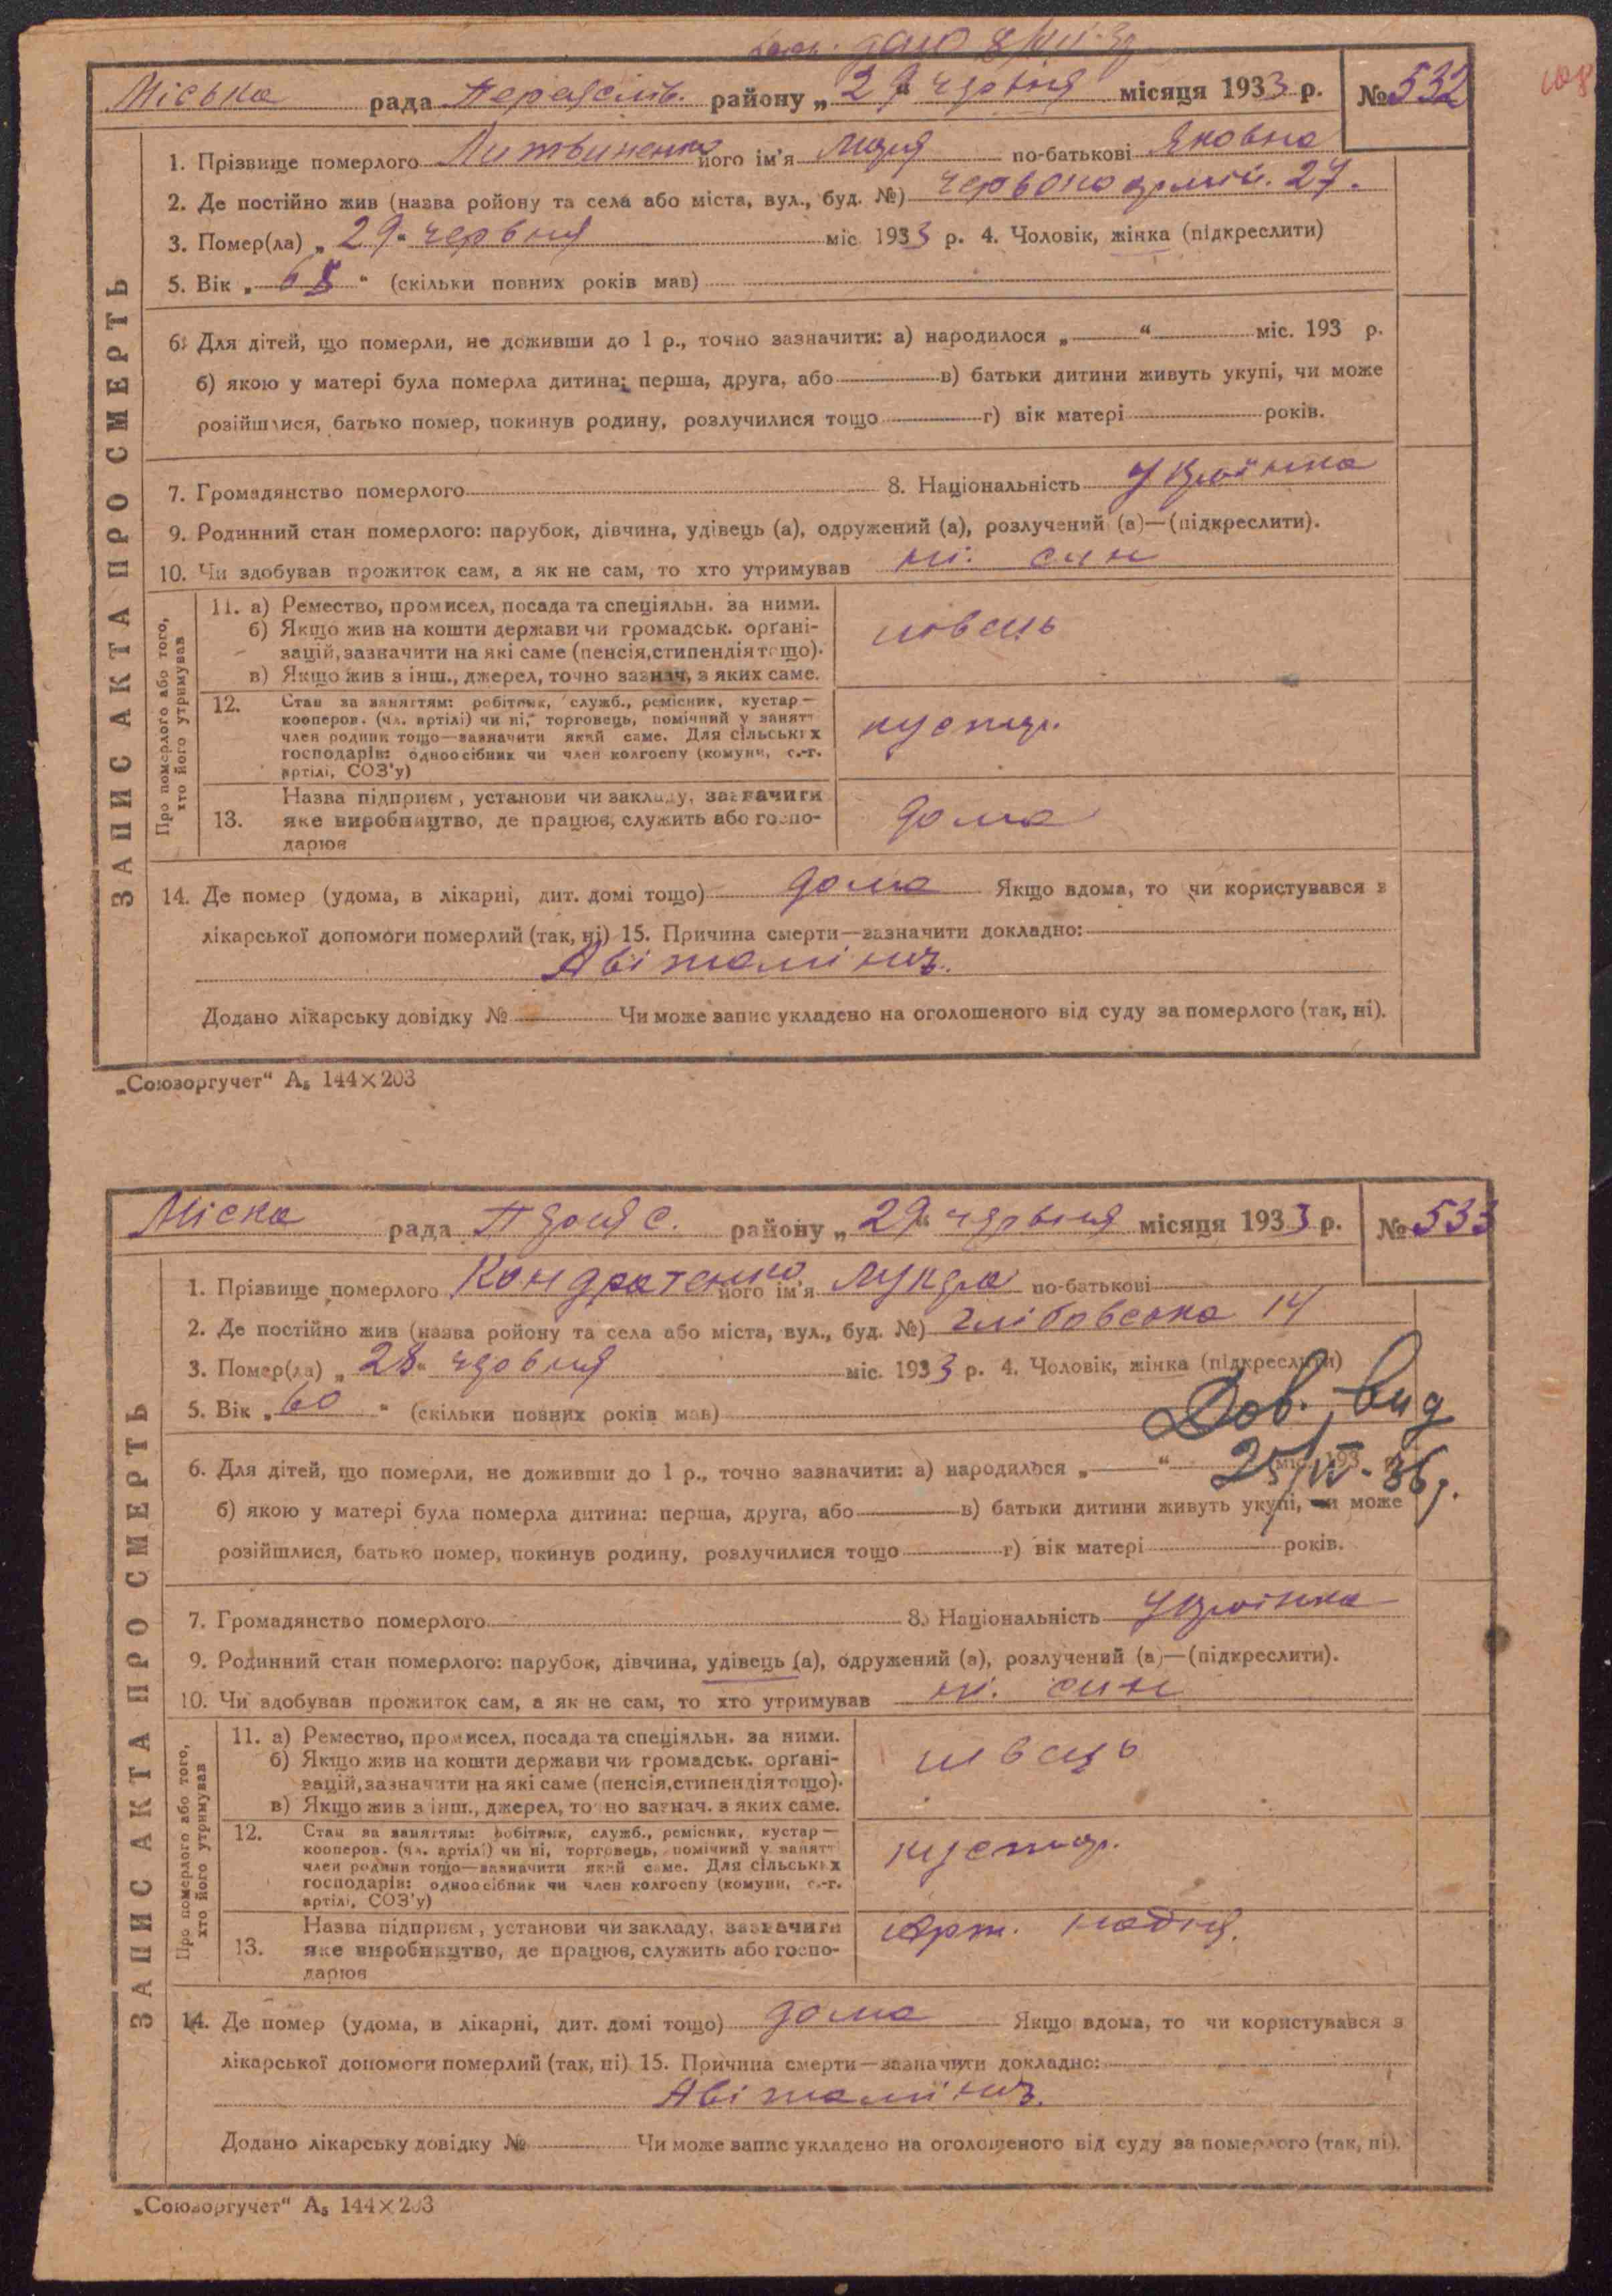 дано 8/VII-33
Міська рада Переяслів. району „29“ червня місяця 1933 р. № 532
108
1. Прізвище померлого Литвиненко його ім'я Марія по-батькові Яковна
2. Де постійно жив (назва ройону та села або міста, вул., буд. №) Червоноармій. 27.
3. Помер(ла) „29“ червня міс. 1933 р. 4. Чоловік, жінка (підкреслити)
5. Вік „65“ (скільки повних років мав)
6. Для дітей, що померли, не доживши до 1 р., точно зазначити: а) народилося „ “ міс. 193 р.
б) якою у матері була померла дитина: перша, друга, або в) батьки дитини живуть укупі, чи може
розійшлися, батько помер, покинув родину, розлучилися тощо г) вік матері років.
7. Громадянство померлого 8. Національність Українка
9. Родинний стан померлого: парубок, дівчина, удівець (а), одружений (а), розлучений (а)—(підкреслити).
10. Чи здобував прожиток сам, а як не сам, то хто утримував ні. син
ЗАПИС АКТА ПРО СМЕРТЬ
Про померлого або того,
хто його утримував
11. а) Ремество, промисел, посада та спеціяльн. за ними.
б) Якщо жив на кошти держави чи громадськ. органі-
зацій, зазначити на які саме (пенсія, стипендія тощо).
в) Якщо жив з інш., джерел, точно зазнач, з яких саме.
швець
12. Стан за заняттям: робітник, служб., ремісник, кустар—
кооперов. (чл. артілі) чи ні, торговець, помічний у занятт
член родини тощо—зазначити який саме. Для сільських
господарів: одноосібник чи член колгоспу (комуни, с.-г.
артілі, СОЗ'у)
кустар.
Назва підприєм, установи чи закладу, зазначити
13. яке виробництво, де працює, служить або госпо-
дарює
дома
14. Де помер (удома, в лікарні, дит. домі тощо) дома Якщо вдома, то чи користувався з
лікарської допомоги померлий (так, ні) 15. Причина смерти—зазначити докладно:
Авітаміноз.
Додано лікарську довідку № Чи може запис укладено на оголошеного від суду за померлого (так, ні).
„Союзоргучет“ А₅ 144×203
Міска рада Пераяс. району „29“ червня місяця 1933 р. № 533
1. Прізвище померлого Кондратенко його ім'я Лукера по-батькові
2. Де постійно жив (назва ройону та села або міста, вул., буд. №) Глібовська 14
3. Помер(ла) „28“ червня міс. 1933 р. 4. Чоловік, жінка (підкреслити)
5. Вік „60“ (скільки повних років мав)
Дов. вид
25/IV-36 р.
6. Для дітей, що померли, не доживши до 1 р., точно зазначити: а) народилося „ “ міс. 193
б) якою у матері була померла дитина: перша, друга, або в) батьки дитини живуть укупі, чи може
розійшлися, батько помер, покинув родину, розлучилися тощо г) вік матері років.
7. Громадянство померлого 8. Національність Українка
9. Родинний стан померлого: парубок, дівчина, удівець (а), одружений (а), розлучений (а)—(підкреслити).
10. Чи здобував прожиток сам, а як не сам, то хто утримував ні. син
ЗАПИС АКТА ПРО СМЕРТЬ
Про померлого або того,
хто його утримував
11. а) Ремество, промисел, посада та спеціяльн. за ними.
б) Якщо жив на кошти держави чи громадськ. органі-
зацій, зазначити на які саме (пенсія, стипендія тощо).
в) Якщо жив з інш., джерел, точно зазнач. з яких саме.
швець
12. Стан за заняттям: робітник, служб., ремісник, кустар—
кооперов. (чл. артілі) чи ні, торговець, помічний у занятт
член родини тощо—зазначити який саме. Для сільських
господарів: одноосібник чи член колгоспу (комуни, с.-г.
артілі, СОЗ'у)
кустар.
Назва підприєм, установи чи закладу, зазначити
13. яке виробництво, де працює, служить або госпо-
дарює
Арт. надія.
14. Де помер (удома, в лікарні, дит. домі тощо) дома Якщо вдома, то чи користувався з
лікарської допомоги померлий (так, ні) 15. Причина смерти—зазначити докладно:
Авітаміноз.
Додано лікарську довідку № Чи може запис укладено на оголошеного від суду за померлого (так, ні).
„Союзоргучет“ А₅ 144×203